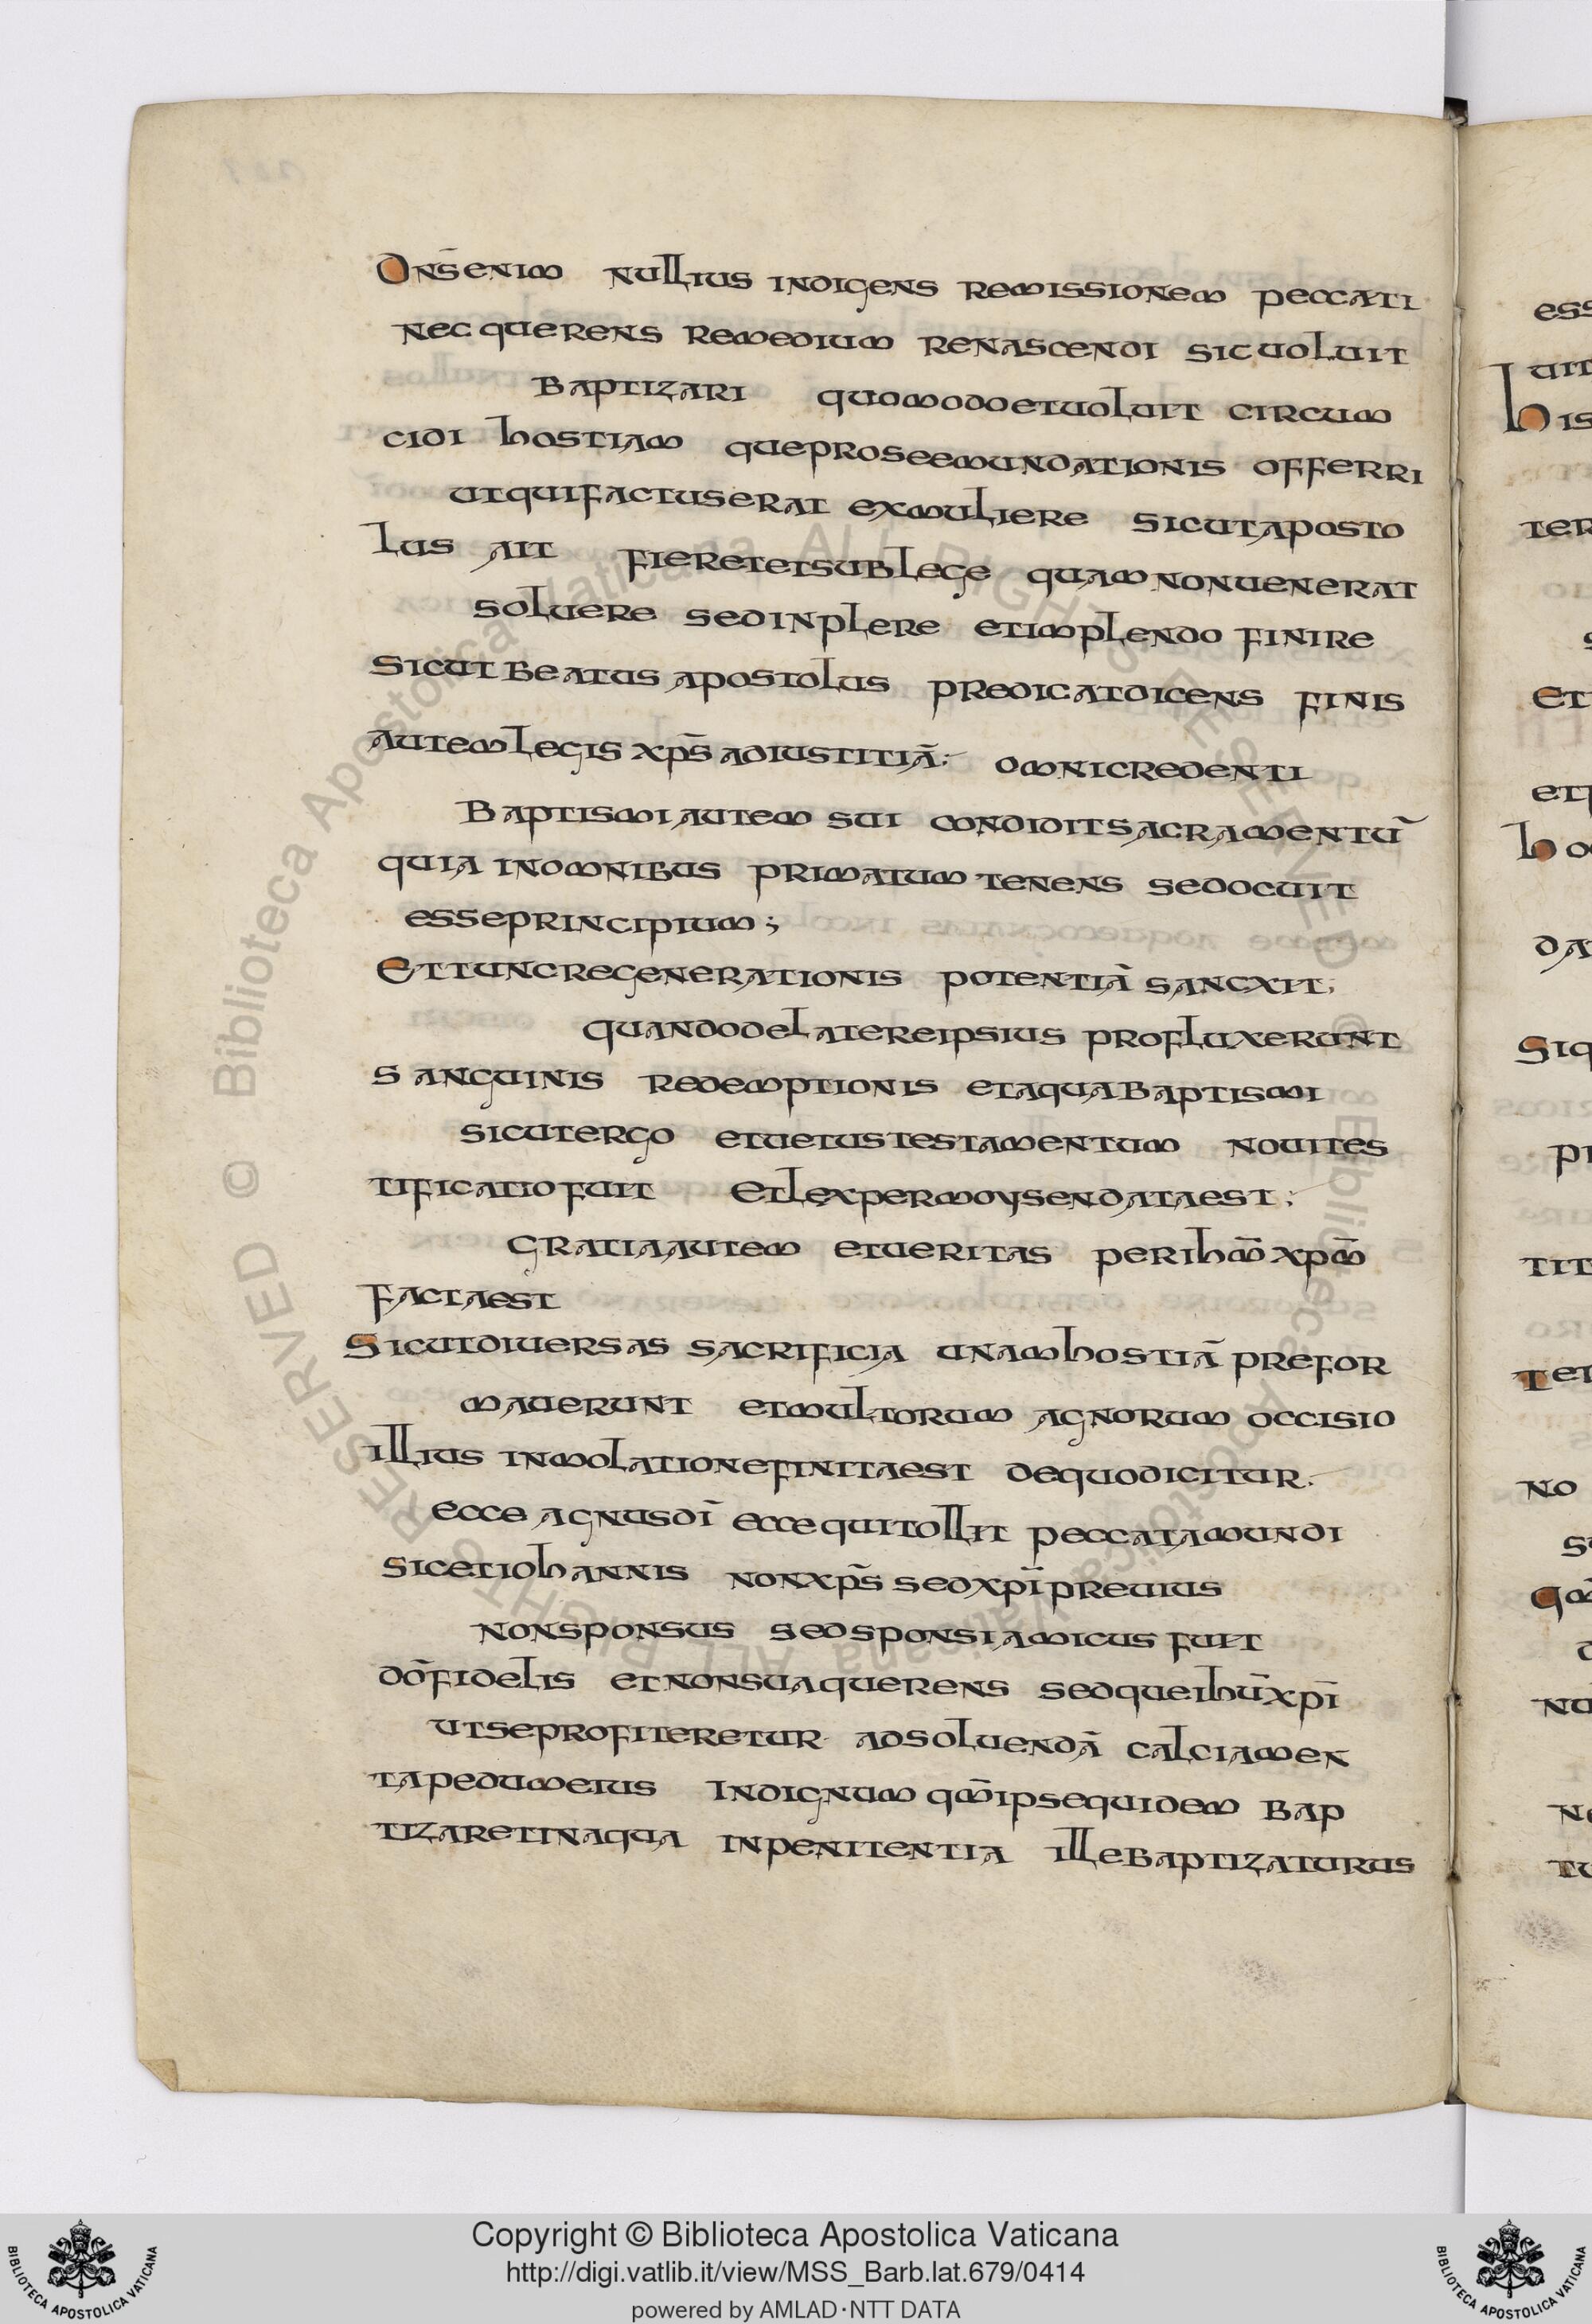 Dn̄s enim nullius indigens remissionem peccati
nec querens remedium renascendi sic uoluit
baptizari quomodo et uoluit circum
cidi hostiam que pro se emundationis offerri
ut qui factus erat ex muliere sicut aposto
lus ait fieret et sub lege quam non uenerat
soluere sed inplere et implendo finire
sicut beatus apostolus predicat dicens finis
autem legis xp̄s ad iustitiā: omni credenti
Baptismi autem sui condidit sacramentū
quia in omnibus primatum tenens se docuit
esse principium;
Et tunc regenerationis potentiā sancxit;
quando de latere ipsius profluxerunt
sanguinis redemptionis et aqua baptismi
sicut ergo et uetus testamentum noui tes
tificatio fuit Et lex per moysen data est;
gratia autem et ueritas per ihm̄ xpm̄
facta est
Sicut diuersas sacrificia unam hostiā prefor
mauerunt et multorum agnorum occisio
illius inmolatione finita est de quo dicitur.
ecce agnus dī ecce qui tollit peccata mundi
sic et iohannis non xp̄s sed xpī preuius
non sponsus sed sponsi amicus fuit
dō fidelis et non sua querens sed que ihū xpī
ut se profiteretur ad soluendā calciamen
ta pedum eius Indignum qm̄ ipse quidem bap
tizaret in aqua in penitentia ille baptizaturus
ess
uit
his
ter
s
Et
et p
ho
da
Siq
pr
tit
Ter
no
s
qm̄
d
nu
ne
tu
Copyright © Biblioteca Apostolica Vaticana
http://digi.vatlib.it/view/MSS_Barb.lat.679/0414
powered by AMLAD·NTT DATA
BIBLIOTECA APOSTOLICA VATICANA
BIBLIOTECA APOSTOLICA VATICANA
© Biblioteca Apostolica Vaticana ALL RIGHT RESERVED © Biblioteca Apostolica Vaticana ALL RIGHT RESERVED